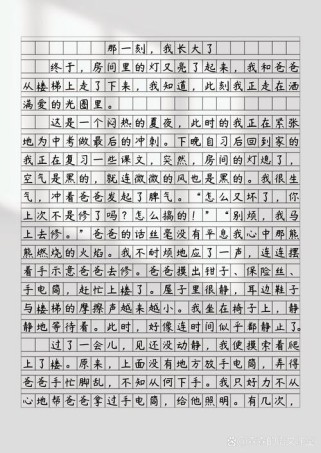 那一刻，我长大了
终于，房间里的灯又亮了起来，我和爸爸
从楼梯上走了下来，我知道，此刻我正走在洒
满爱的光圈里。
这是一个闷热的夏夜，此时的我正在紧张
地为中考做最后的冲刺。下晚自习后回到家的
我正在复习一些课文，突然，房间的灯熄了，
空气是黑的，就连微微的风也是黑的。我很生
气，冲着爸爸发起了脾气。“怎么又坏了，你
上次不是修了吗？怎么搞的！”“别烦，我马
上去修。”爸爸的话丝毫没有平息我心中那熊
熊燃烧的火焰。我不耐烦地应了一声，连连摆
着手示意爸爸去修。爸爸摸出钳子、保险丝、
手电筒，赶忙上楼了。屋子里很静，耳边鞋子
与楼梯的摩擦声越来越小。我坐在椅子上，静
静地等待着。此时，好像连时间似乎都静止了。
过了一会儿，见还没动静，我便摸索着爬
上了楼。原来，上面没有地方放手电筒，弄得
爸爸手忙脚乱，不知从何下手。我只好力不从
心地帮爸爸拿过手电筒，给他照明。有几次，